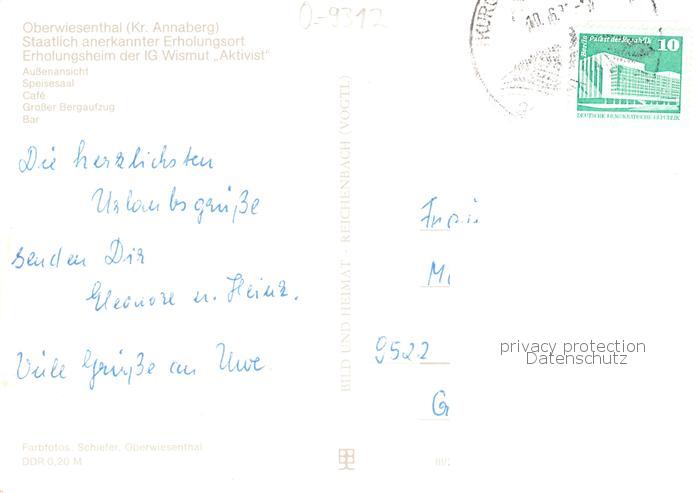 0-9312
Oberwiesenthal (Kr. Annaberg)
Staatlich anerkannter Erholungsort
Erholungsheim der IG Wismut „Aktivist"
Außenansicht
Speisesaal
Café
Großer Bergaufzug
Bar
Die herzlichsten
Urlaubsgrüße
senden Dir
Eleonore u. Heinz.
Viele Grüße an Uwe
Farbfotos: Schiefer, Oberwiesenthal
DDR 0,20 M
BILD UND HEIMAT · REICHENBACH (VOGTL)
KURO
10.6.
Berlin Palast der Republik 10
DEUTSCHE DEMOKRATISCHE REPUBLIK
M
9522
G
privacy protection
Datenschutz
III/